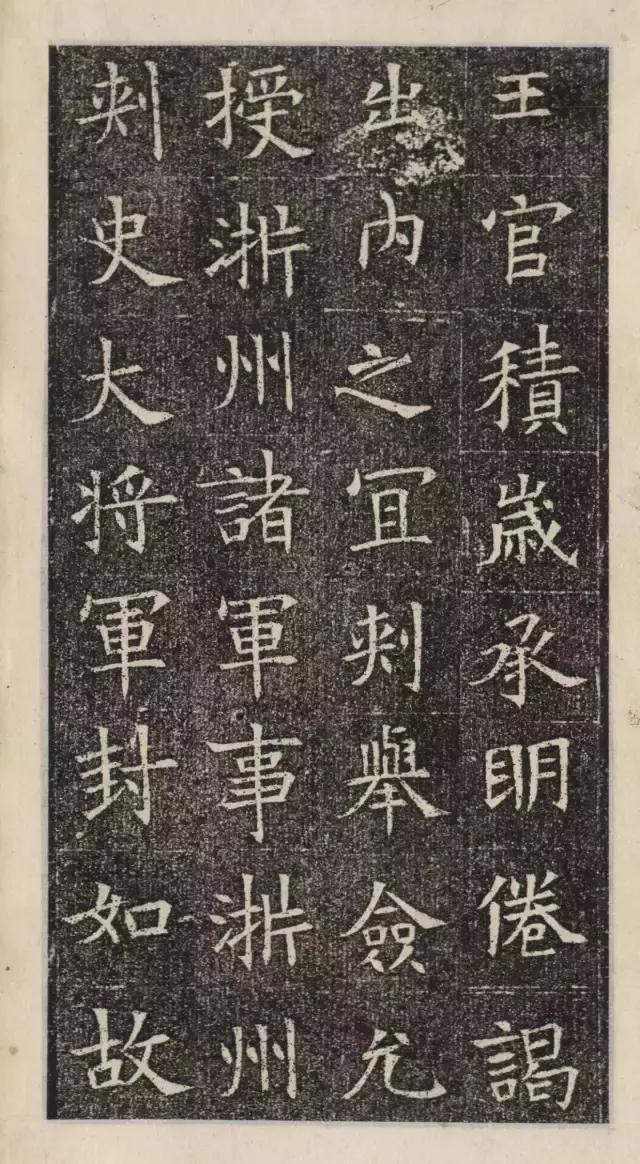 王官積歲承眀倦謁
出內之冝刾舉僉允
授淅州諸軍事淅州
刾史大将軍封如故